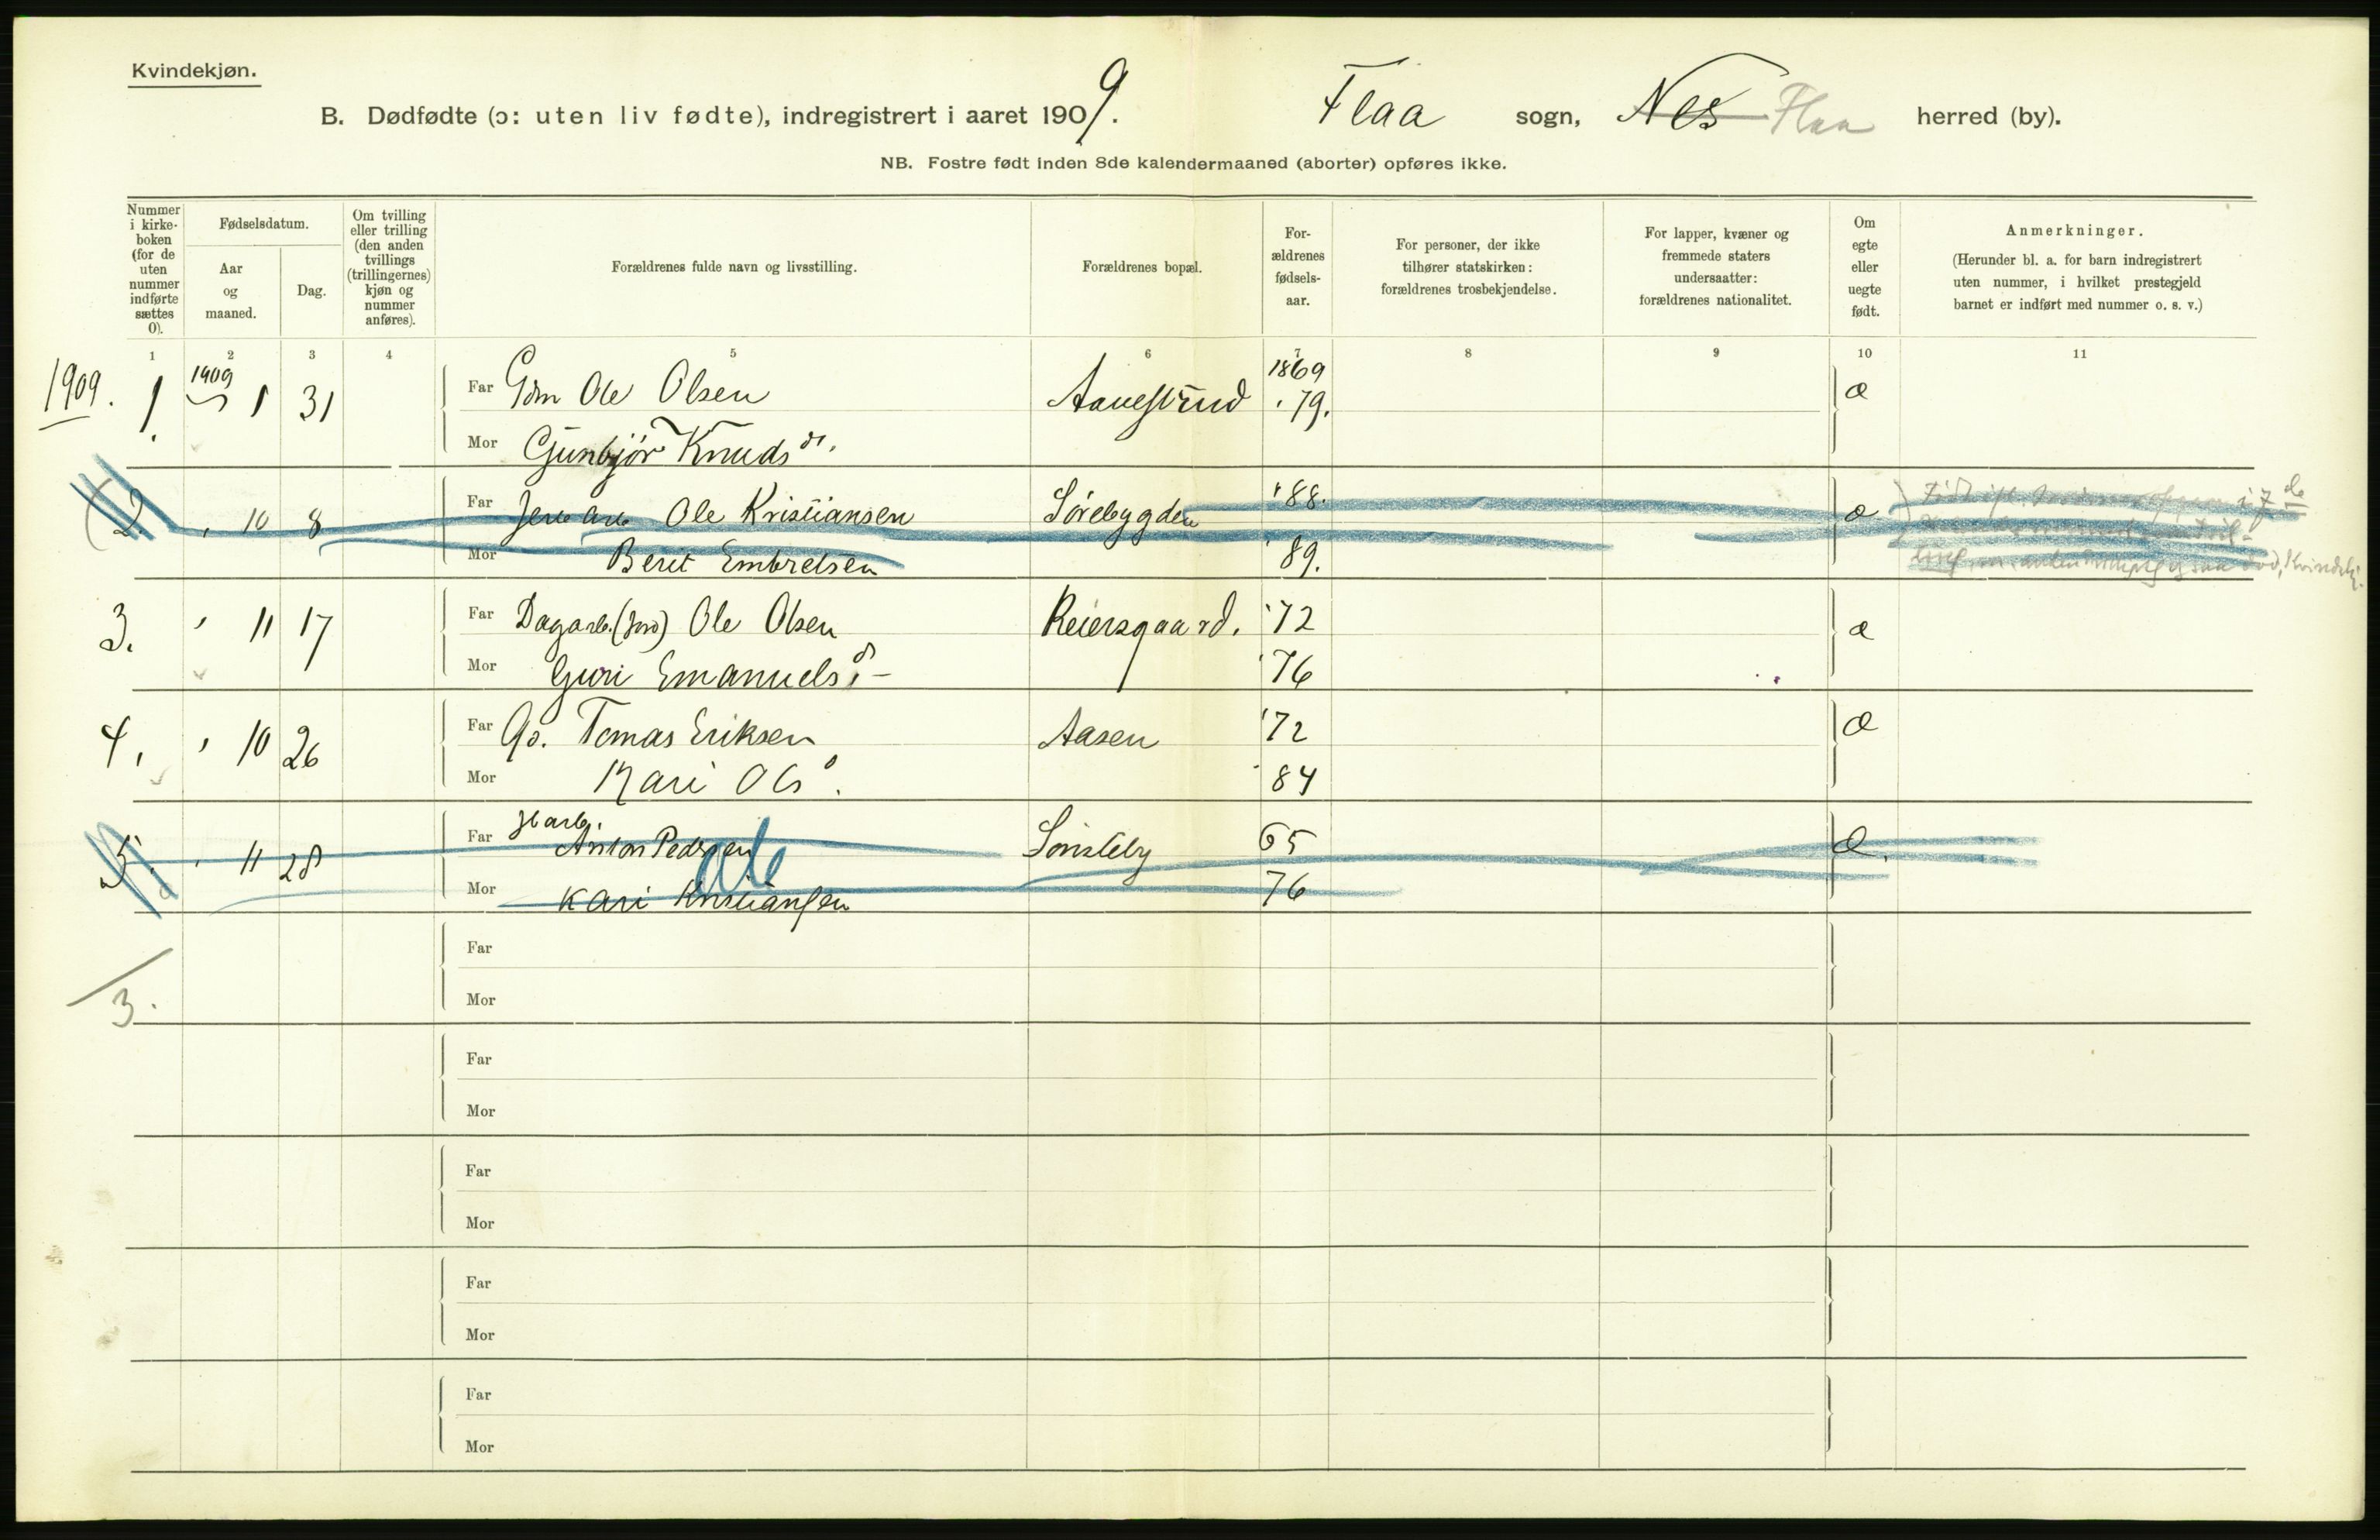 Kvindekjøn.
B. Dødfødte (ɔ: uten liv fødte), indregistrert i aaret 1909. Flaa sogn, Nes Flaa herred (by).
NB. Fostre født inden 8de kalendermaaned (aborter) opføres ikke.
Nummer i kirkeboken (for de uten nummer indførte sættes 0).
Fødselsdatum.
Aar og maaned.
Dag.
Om tvilling eller trilling (den anden tvillings (trillingernes) kjøn og nummer anføres).
Forældrenes fulde navn og livsstilling.
Forældrenes bopæl.
Forældrenes fødselsaar.
For personer, der ikke tilhører statskirken: forældrenes trosbekjendelse.
For lapper, kvæner og fremmede staters undersaatter: forældrenes nationalitet.
Om egte eller uegte født.
Anmerkninger.
(Herunder bl. a. for barn indregistrert uten nummer, i hvilket prestegjeld barnet er indført med nummer o. s. v.)
1 2 3 4 5 6 7 8 9 10 11
1909. 1. 1909 1 31 Far Gdm Ole Olsen Aavestrud 1869 æ
'79.
Mor Gunbjör Knudsdr.
2. ' 10 8 Far Ole Kristiansen Sørebygden '88. æ
Mor Berit Embretsen '89.
3. ' 11 17 Far Dagarb. (Jord) Ole Olsen Reiersgaard. '72 æ
Mor Guri Emanuelsd. '76
4. ' 10 26 Far Gd. Tomas Eriksen Aasen '72 æ
Mor Kari Olsd. 84
5. ' 11 28 Far Anton Pedersen 65 æ.
Mor Kari Kristiansen 76
Far
3. Mor
Far
Mor
Far
Mor
Far
Mor
Far
Mor